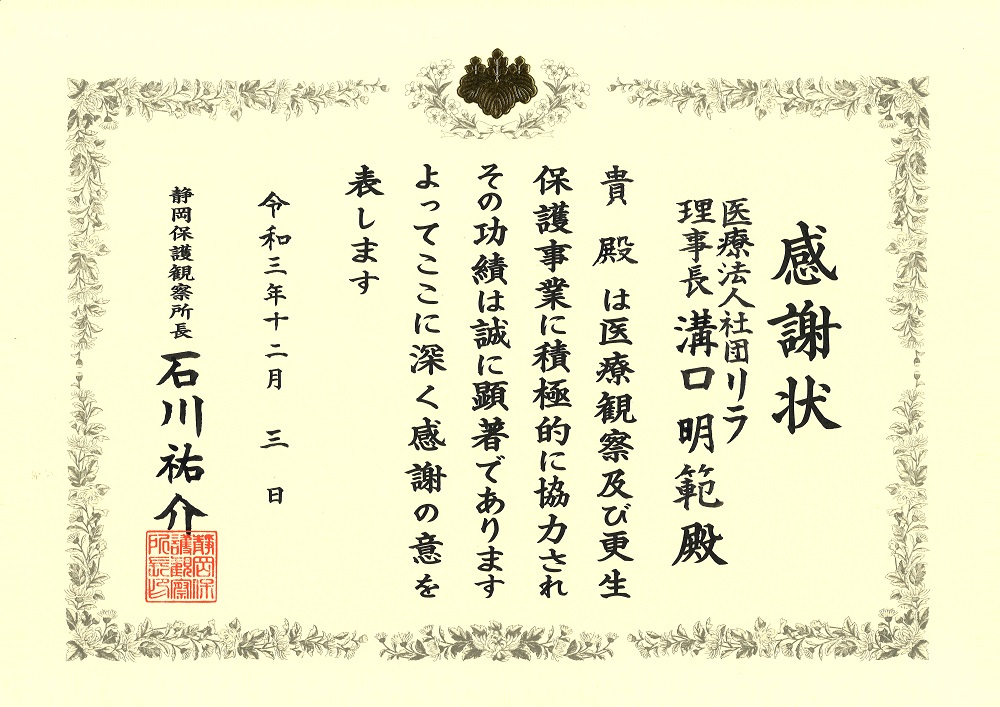 感謝状
医療法人社団リラ
理事長 溝口明範殿
貴殿は医療観察及び更生
保護事業に積極的に協力され
その功績は誠に顕著であります
よってここに深く感謝の意を
表します
令和三年十二月三日
静岡保護観察所長 石川祐介
静岡保
護観察
所長印